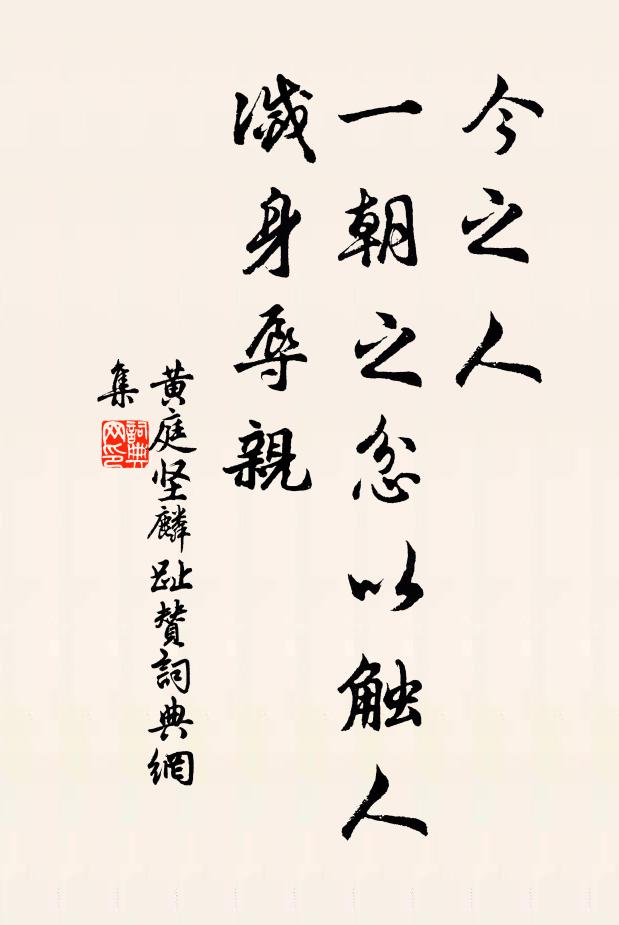 今之人
一朝之忿以触人
灭身辱親
黄庭坚麟趾赞詞典網
集
詞典
网印